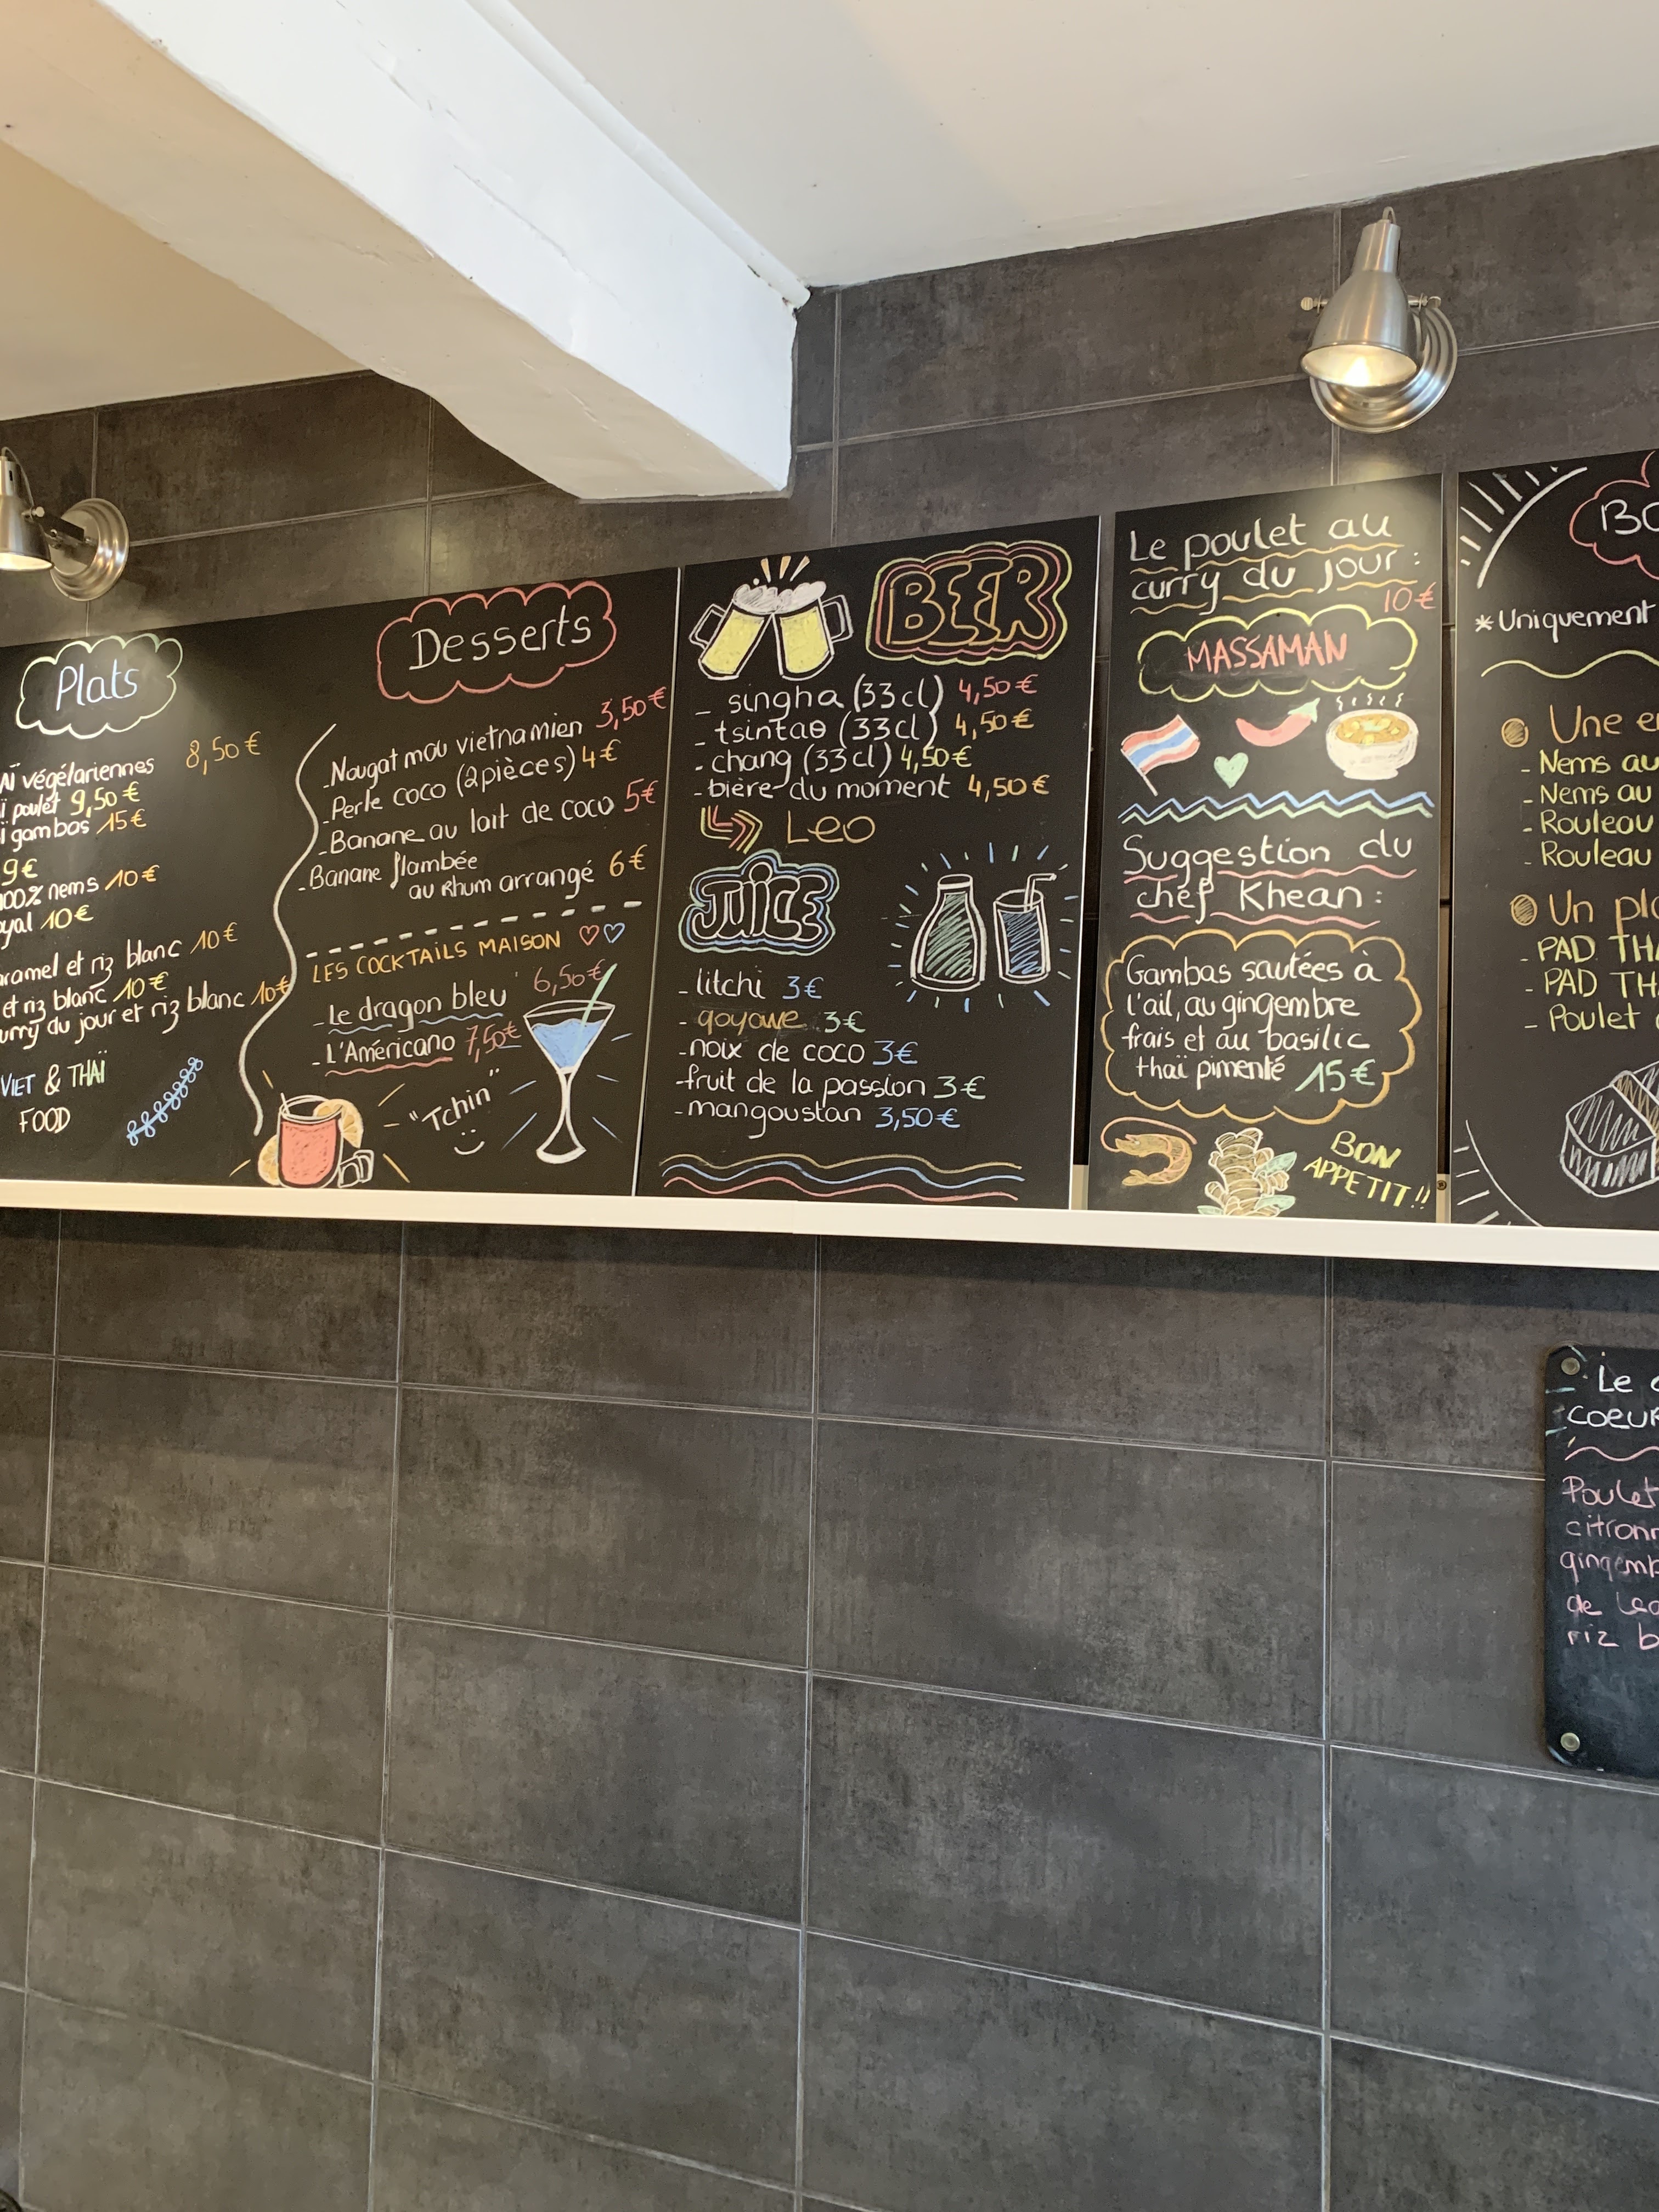 Plats
végétariennes 8,50€
poulet 9,50€
gambas 15€
9€
100% nems 10€
10€
et riz blanc 10€
et riz blanc 10€
du jour et riz blanc 10€
VIET & THAÏ
FOOD
Desserts
- Nougat mou vietnamien 3,50€
- Perle coco (2 pièces) 4€
- Banane au lait de coco 5€
- Banane flambée
au Rhum arrangé 6€
LES COCKTAILS MAISON
- Le dragon bleu 6,50€
- L'Américano 7,50€
"Tchin"
BEER
- singha (33cl) 4,50€
- tsintao (33cl) 4,50€
- chang (33cl) 4,50€
- bière du moment 4,50€
Leo
JUICE
- litchi 3€
- goyave 3€
- noix de coco 3€
- fruit de la passion 3€
- mangoustan 3,50€
Le poulet au
curry du jour :
10€
MASSAMAN
Suggestion du
chef Khean :
Gambas sautées à
l'ail, au gingembre
frais et au basilic
thaï pimenté 15€
BON
APPETIT !!
*Uniquement
Une
- Nems au
- Nems au
- Rouleau
- Rouleau
Un
- PAD
- PAD
- Poulet
Le
Poulet
riz